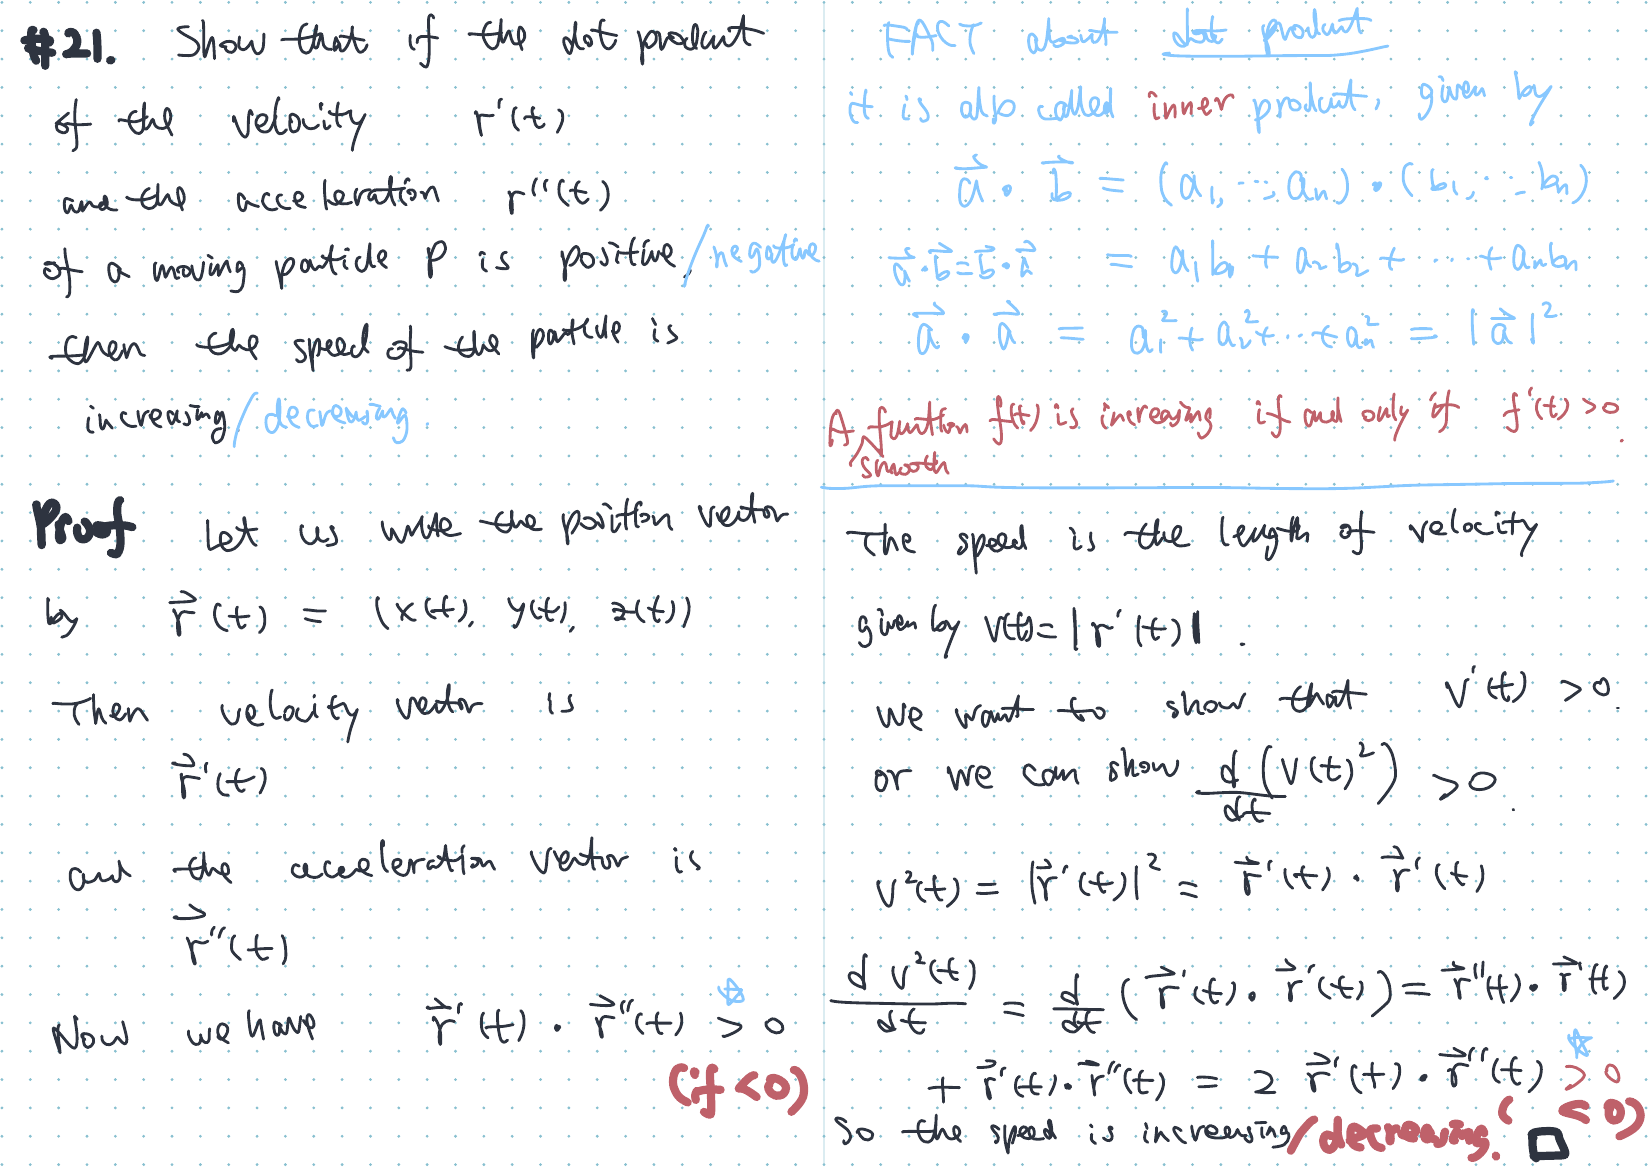 #21. Show that if the dot product
of the velocity r'(t)
and the acceleration r''(t)
of a moving particle P is positive/negative
then the speed of the particle is
increasing/decreasing.
Proof Let us write the position vector
by r⃗(t) = (x(t), y(t), z(t))
Then velocity vector is
r⃗'(t)
and the acceleration vector is
r⃗''(t)
Now we have r⃗'(t) · r⃗''(t) > 0 ☆
(if < 0)
FACT about dot product
it is also called inner product, given by
a⃗ · b⃗ = (a₁, ..., aₙ) · (b₁, ..., bₙ)
a⃗·b⃗ = b⃗·a⃗ = a₁b₁ + a₂b₂ + ... + aₙbₙ
a⃗ · a⃗ = a₁² + a₂² + ... + aₙ² = |a⃗|²
A smooth function f(t) is increasing if and only if f'(t) > 0.
The speed is the length of velocity
given by v(t) = |r'(t)|.
We want to show that v'(t) > 0.
or we can show d/dt (v(t)²) > 0.
v²(t) = |r⃗'(t)|² = r⃗'(t) · r⃗'(t)
d v²(t)/dt = d/dt (r⃗'(t) · r⃗'(t)) = r⃗''(t) · r⃗'(t)
+ r⃗'(t) · r⃗''(t) = 2 r⃗'(t) · r⃗''(t) > 0 ☆
(< 0)
So the speed is increasing/decreasing. □